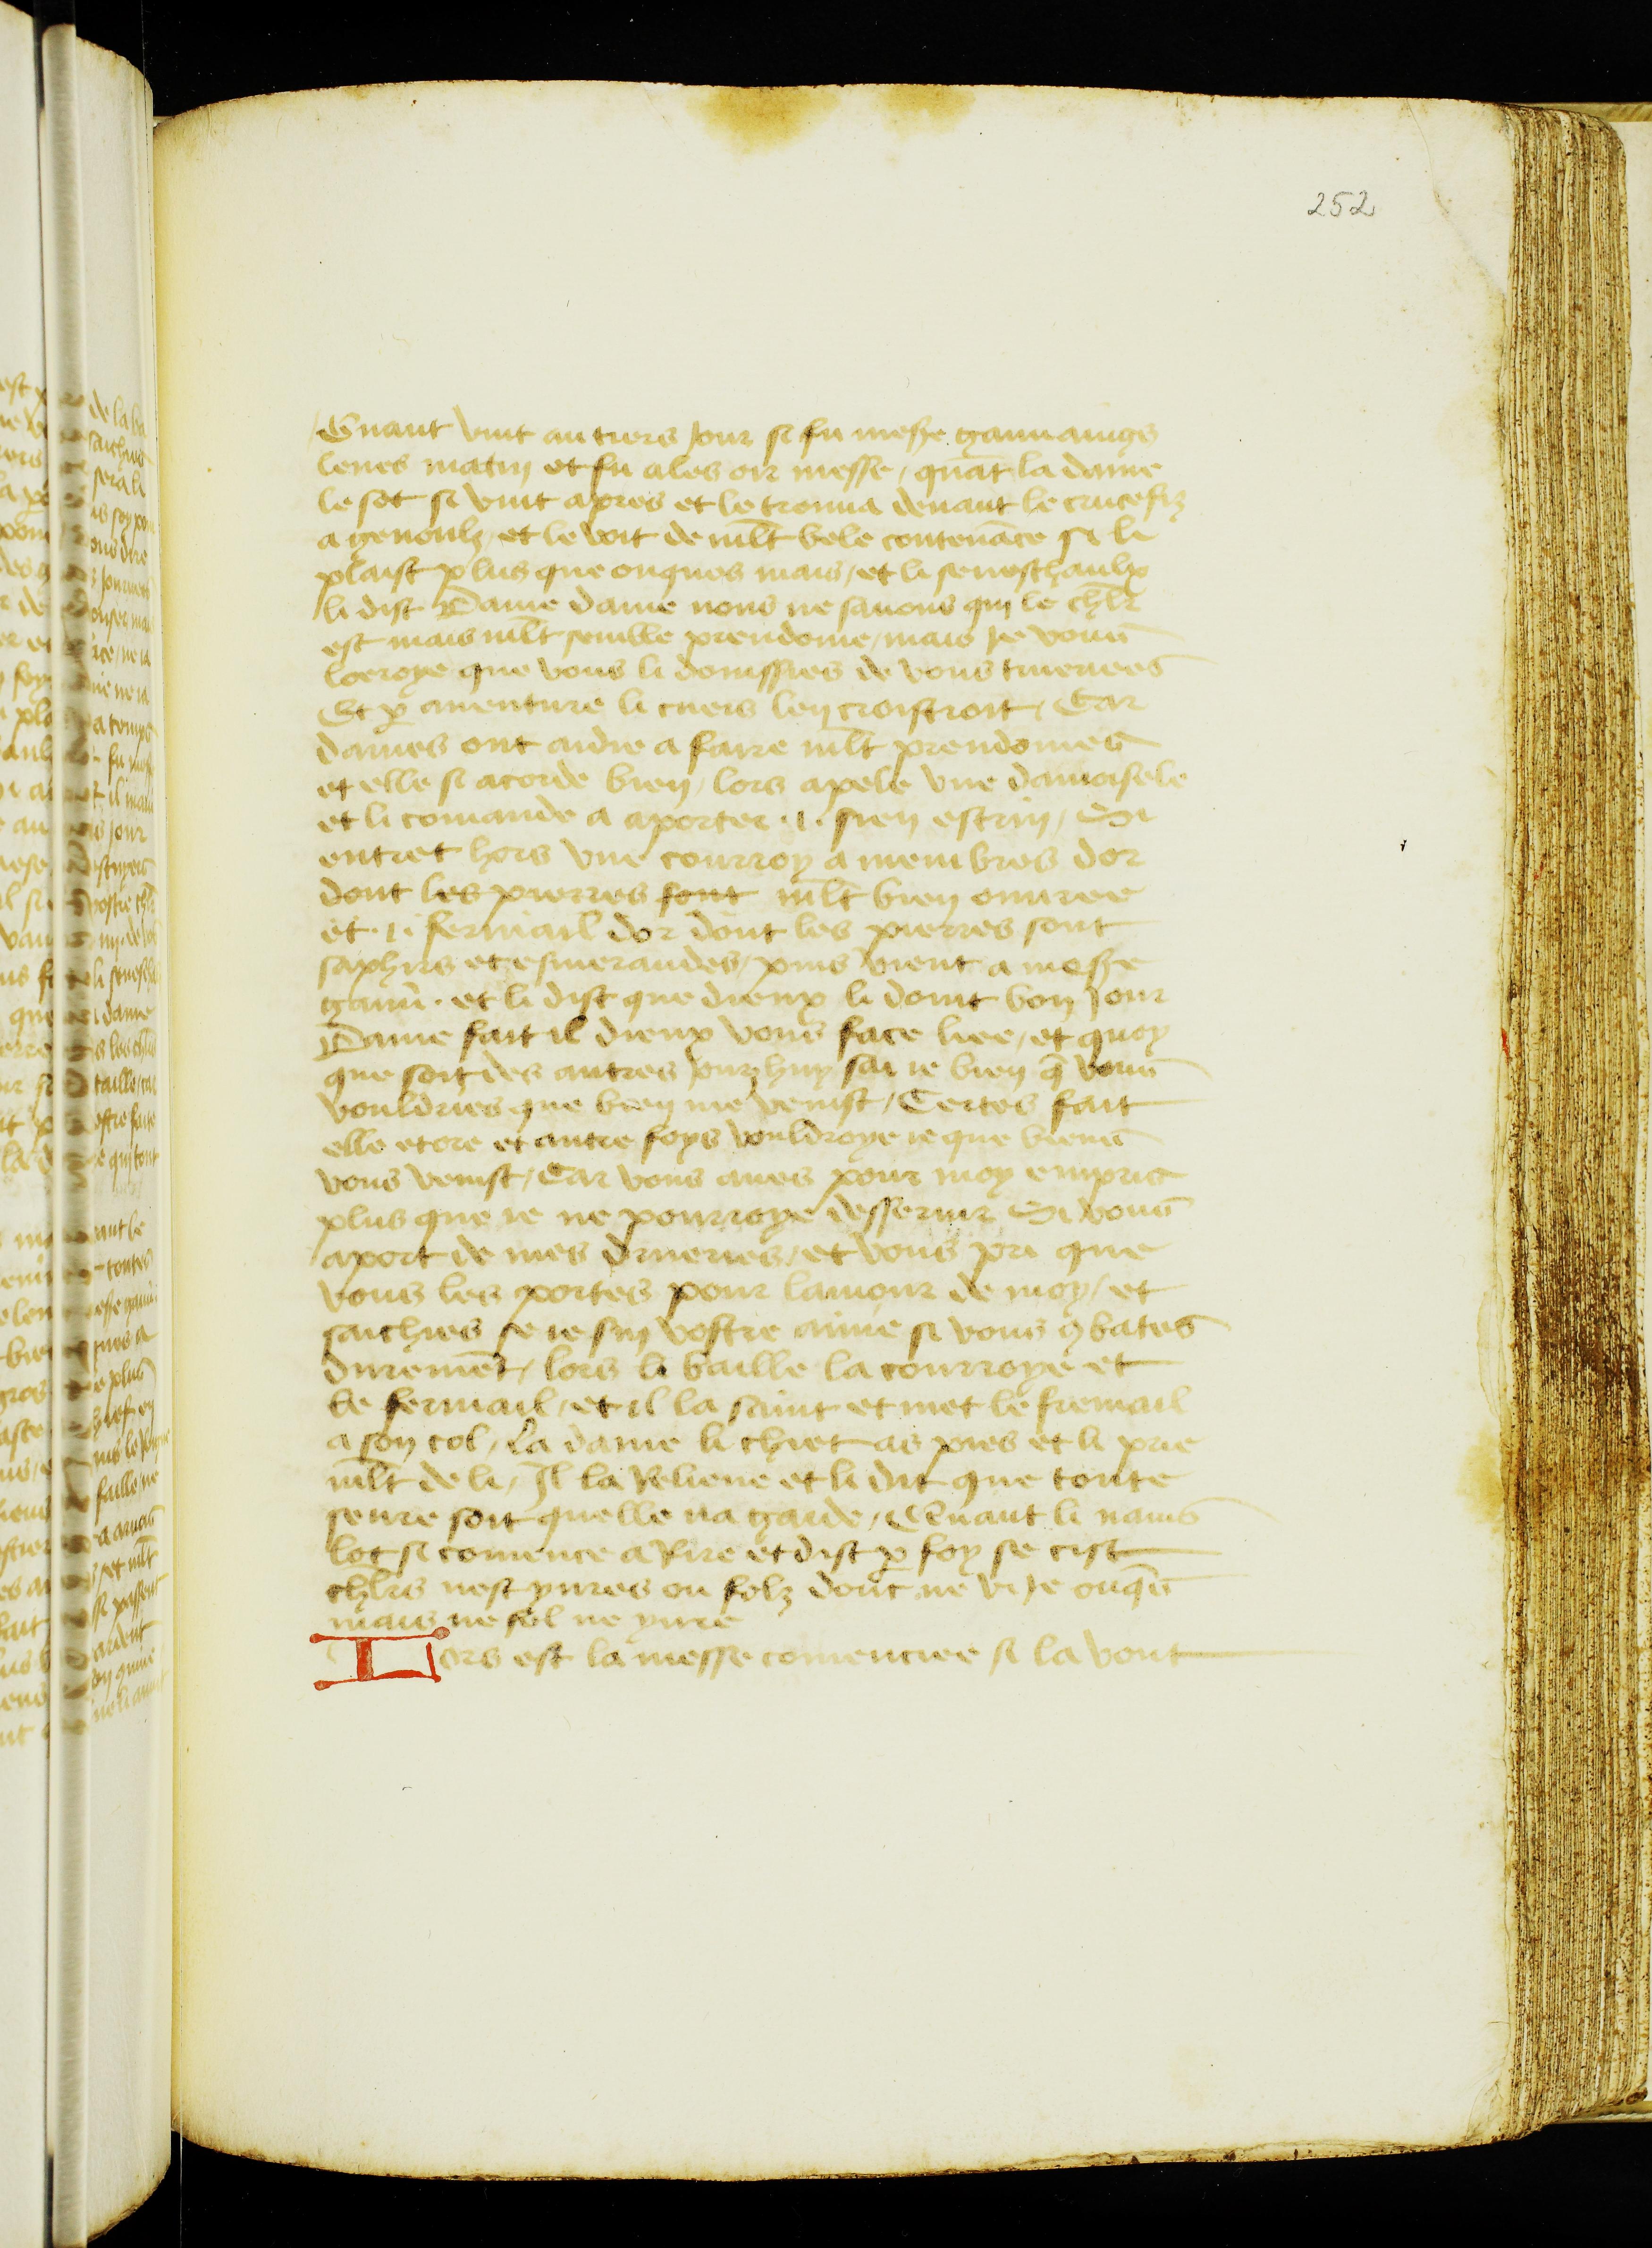 252
Quant vint au tiers Jour si fu mesre gauuaings
leues matin et fu ales oir messe / quāt la dame
le sot si vint apres et le trouua deuant le crucefiz
a genoulz / et le voit de mlt bele contenāce si li
plaist plus que onques mais / et li seneschaulx
li dist Dame dame nous ne sauons qui le chlr
est mais mlt semble preudome / mais Je vous
loeroye que vous li donissies de vous trueriees
Et p auenture li cuers len croistroit / Car
dames ont aidie a faire mlt preudomes
et elle si acorde bien / lors apele vne damoisele
et li comande a aporter .1. sien escrin / Si
entret hors vne courroy a membres dor
dont les pierres sont mlt bien ouuree
et .1. fermail dor dont les pierres sont
saphirs et esmeraudes / puis vient a mesre
gauū . et li dist que dieux li doint bon Jour
Dame fait il dieux vous face liee / et quoy
que soit des autres Jourhuy sai ie bien q̄ vous
vouldries que bien me venist / Certes fait
elle et ore et autre foys vouldroye ie que biens
vous venist / Car vous aues pour moy empris
plus que ie ne pourroye desseruir Si vous
aport de mes drueries / et vous pri que
vous les portes pour lamour de moy / et
saichies se ie suy vostre amie si vous ꝯbates
duremēt / lors li baille la courroye et
le fermail / et il la saint et met le fremail
a son col / La dame li chiet as pies et li prie
mlt de li / Il la Relieue et li dit que toute
seure soit quelle na garde / Quant li nains
lot si comence a Rire et dist p foy se cist
chlrs nest yures ou folz dont ne vi Je onqs
mais ne fol ne yure
Lors est la messe comenciee si la vont